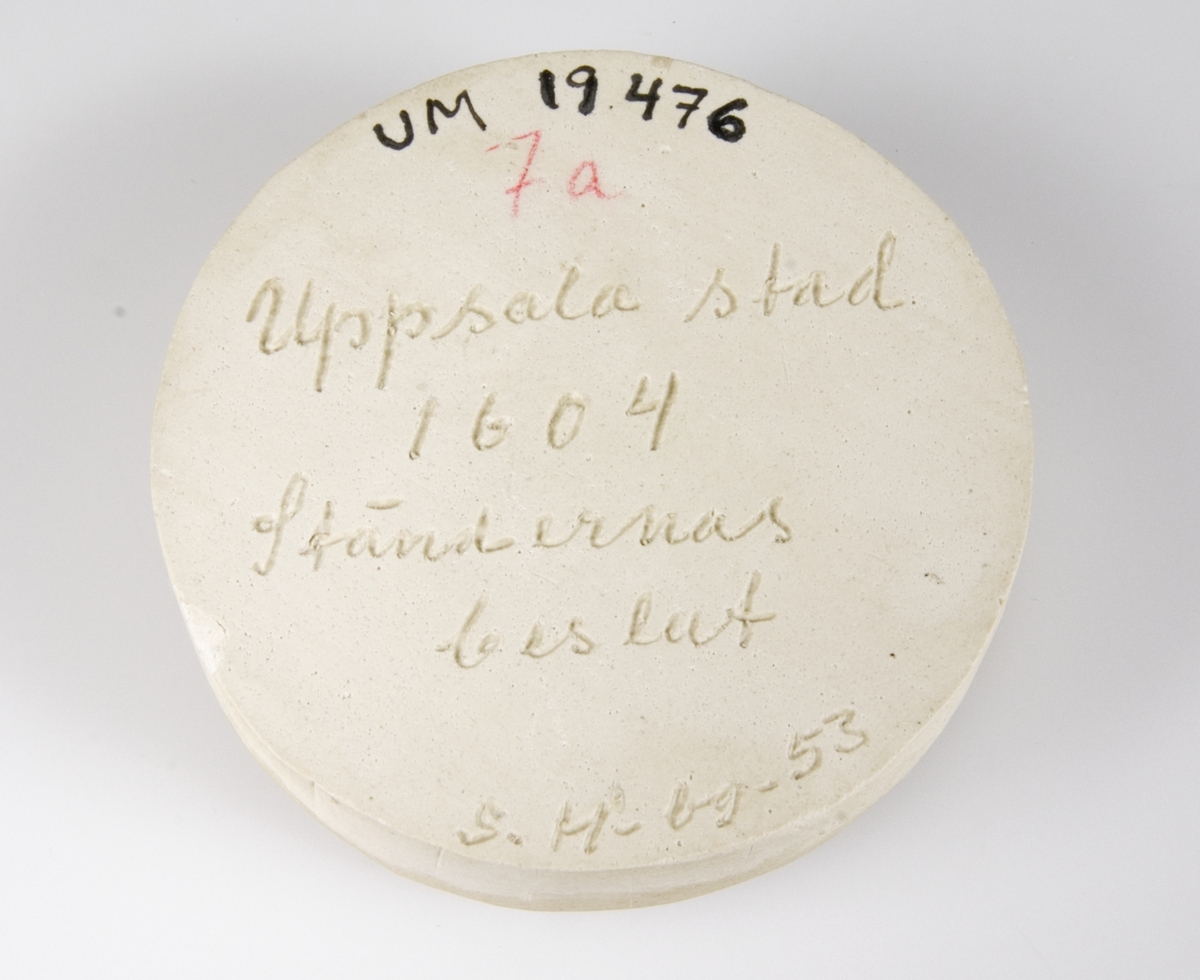 UM 19 476
7a
Uppsala stad
1604
Ständernas
beslut
S. H-bg-53